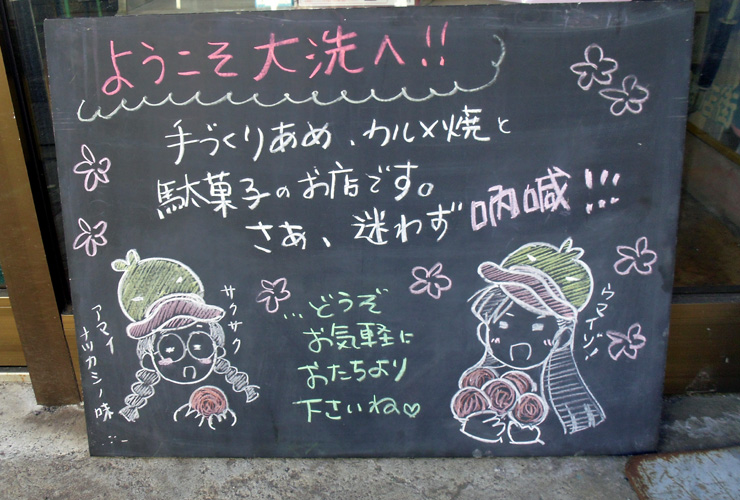 ようこそ大洗へ!!
手づくりあめ、カルメ焼と
駄菓子のお店です。
さあ、迷わず吶喊!!!
サクサク
アマイ
ナツカシノ味
…どうぞ
お気軽に
おたちより
下さいね♡
ウマイゾ!!